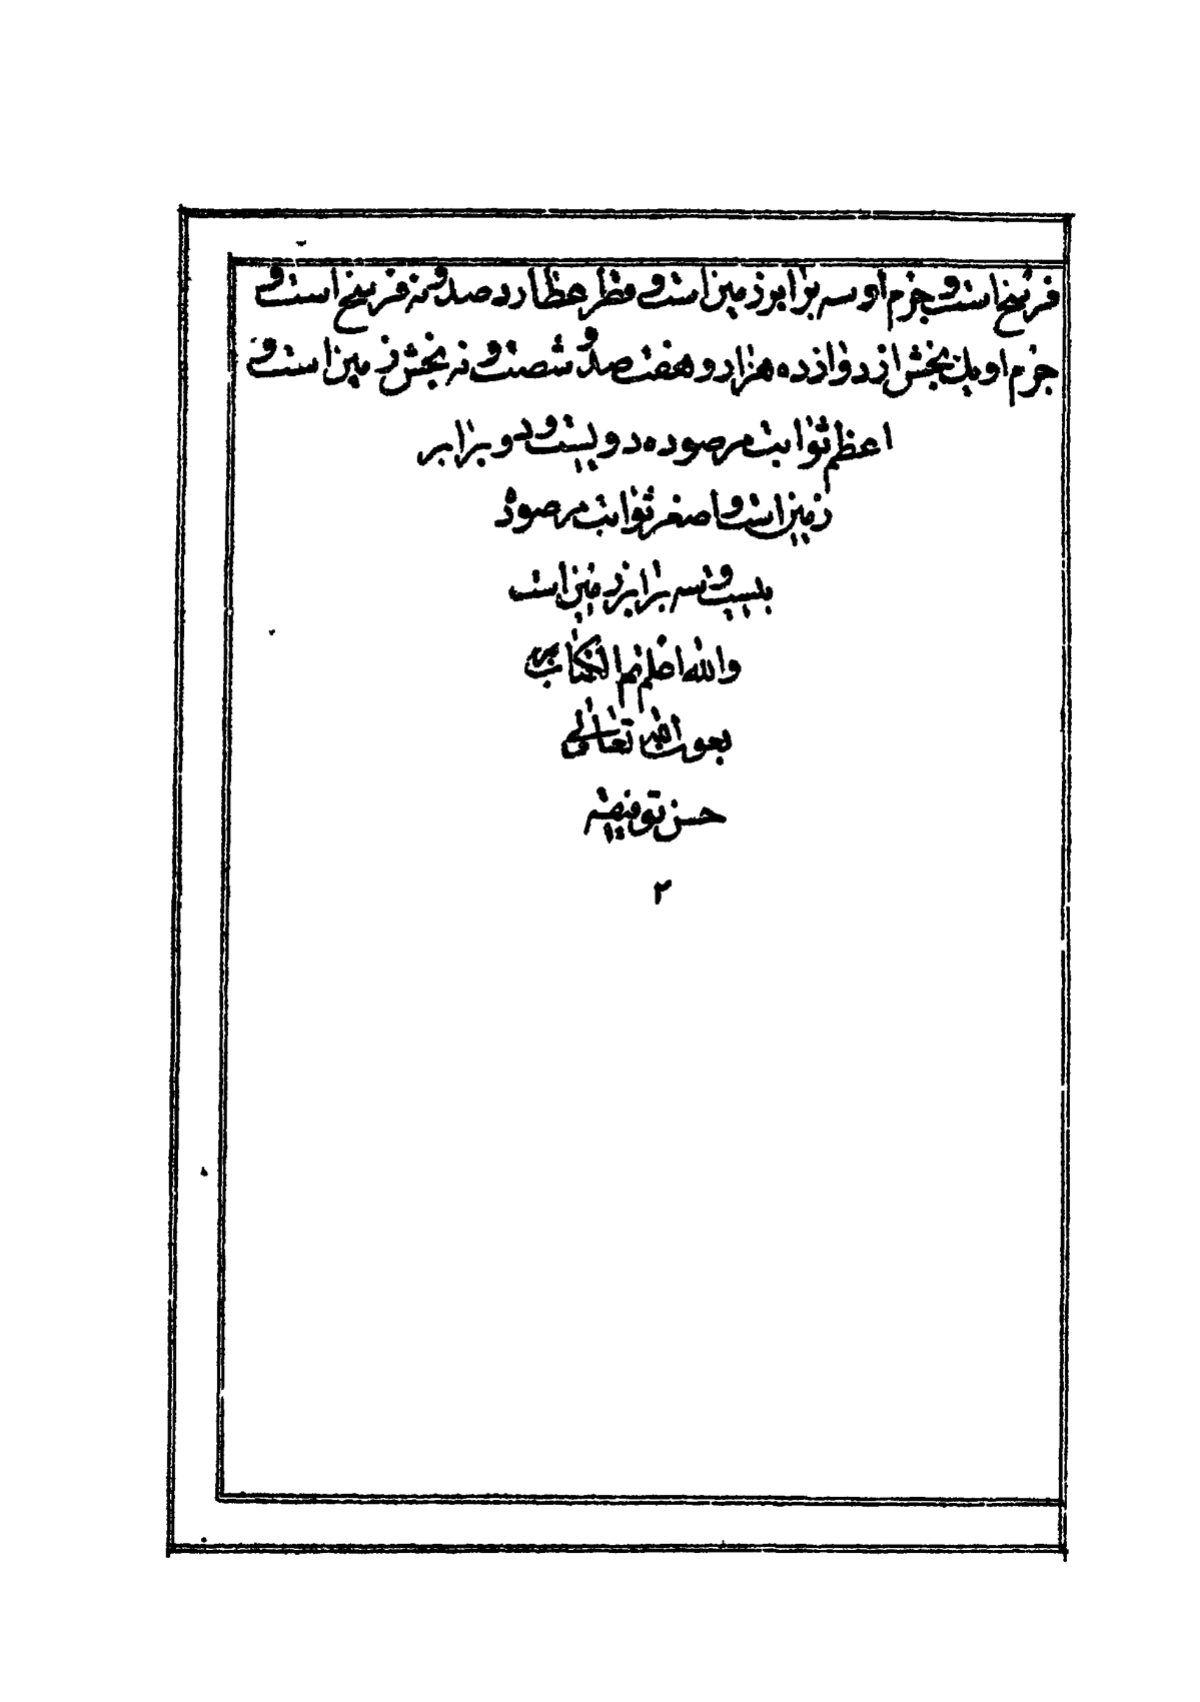 فرسخ است و جرم او سه برابر زمین است و قطر عطارد صد و نه فرسخ است و
جرم او یک بخش از دوازده هزار و هفت صد و شصت و نه بخش زمین است و
اعظم ثوابت مرصوده دویست و دو برابر
زمین است و اصغر ثوابت مرصوده
بیست و سه برابر زمین است
والله اعلم تم الکتاب
بعون الله تعالی
حسن توفیقه
۲